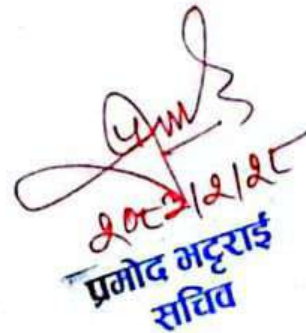 २०८३|२|२८
प्रमोद भट्टराई
सचिव